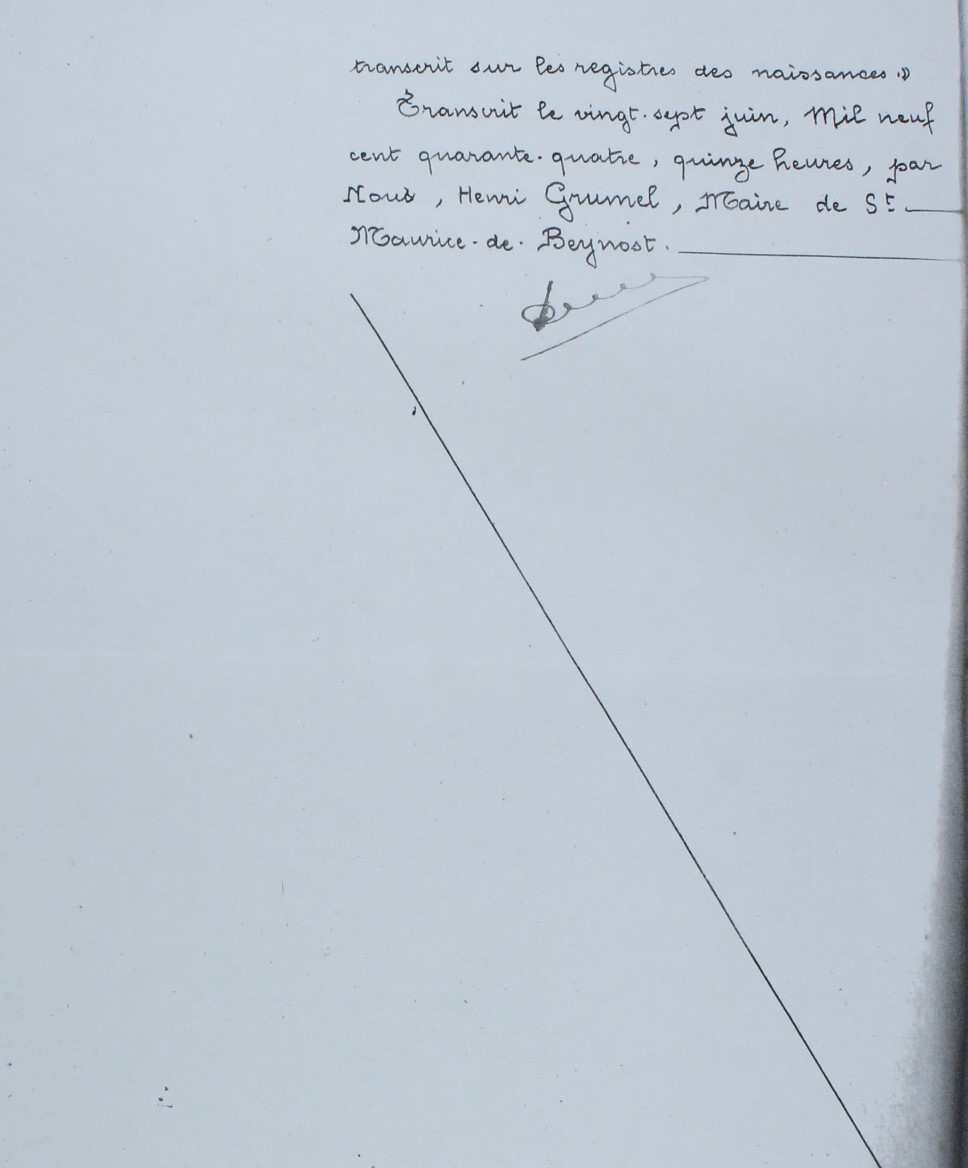 transcrit sur les registres des naissances.»
Transcrit le vingt-sept juin, Mil neuf
cent quarante-quatre, quinze heures, par
Nous, Henri Grumel, Maire de St
Maurice-de-Beynost.